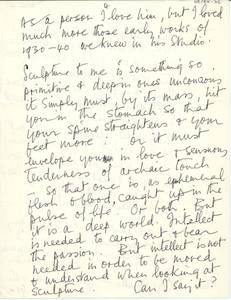 As a person I love him, but I loved
much more those early works of
1930-40 we knew in his Studio.
Sculpture to me is something so
primitive & deep in ones unconscious
it simply must, by its mass, hit
you in the stomach so that
your spine straightens & your
feet move: or it must
envelope you in love & sensuous
tenderness of archaic touch
– so that one is, as ephemeral
flesh & blood, caught up in the
pulse of life. Or both. But
it is a deep world. Intellect
is needed to carry out & bear
the passion. But intellect is not
needed in order to be moved
& understand when looking at
sculpture. Can I say it?